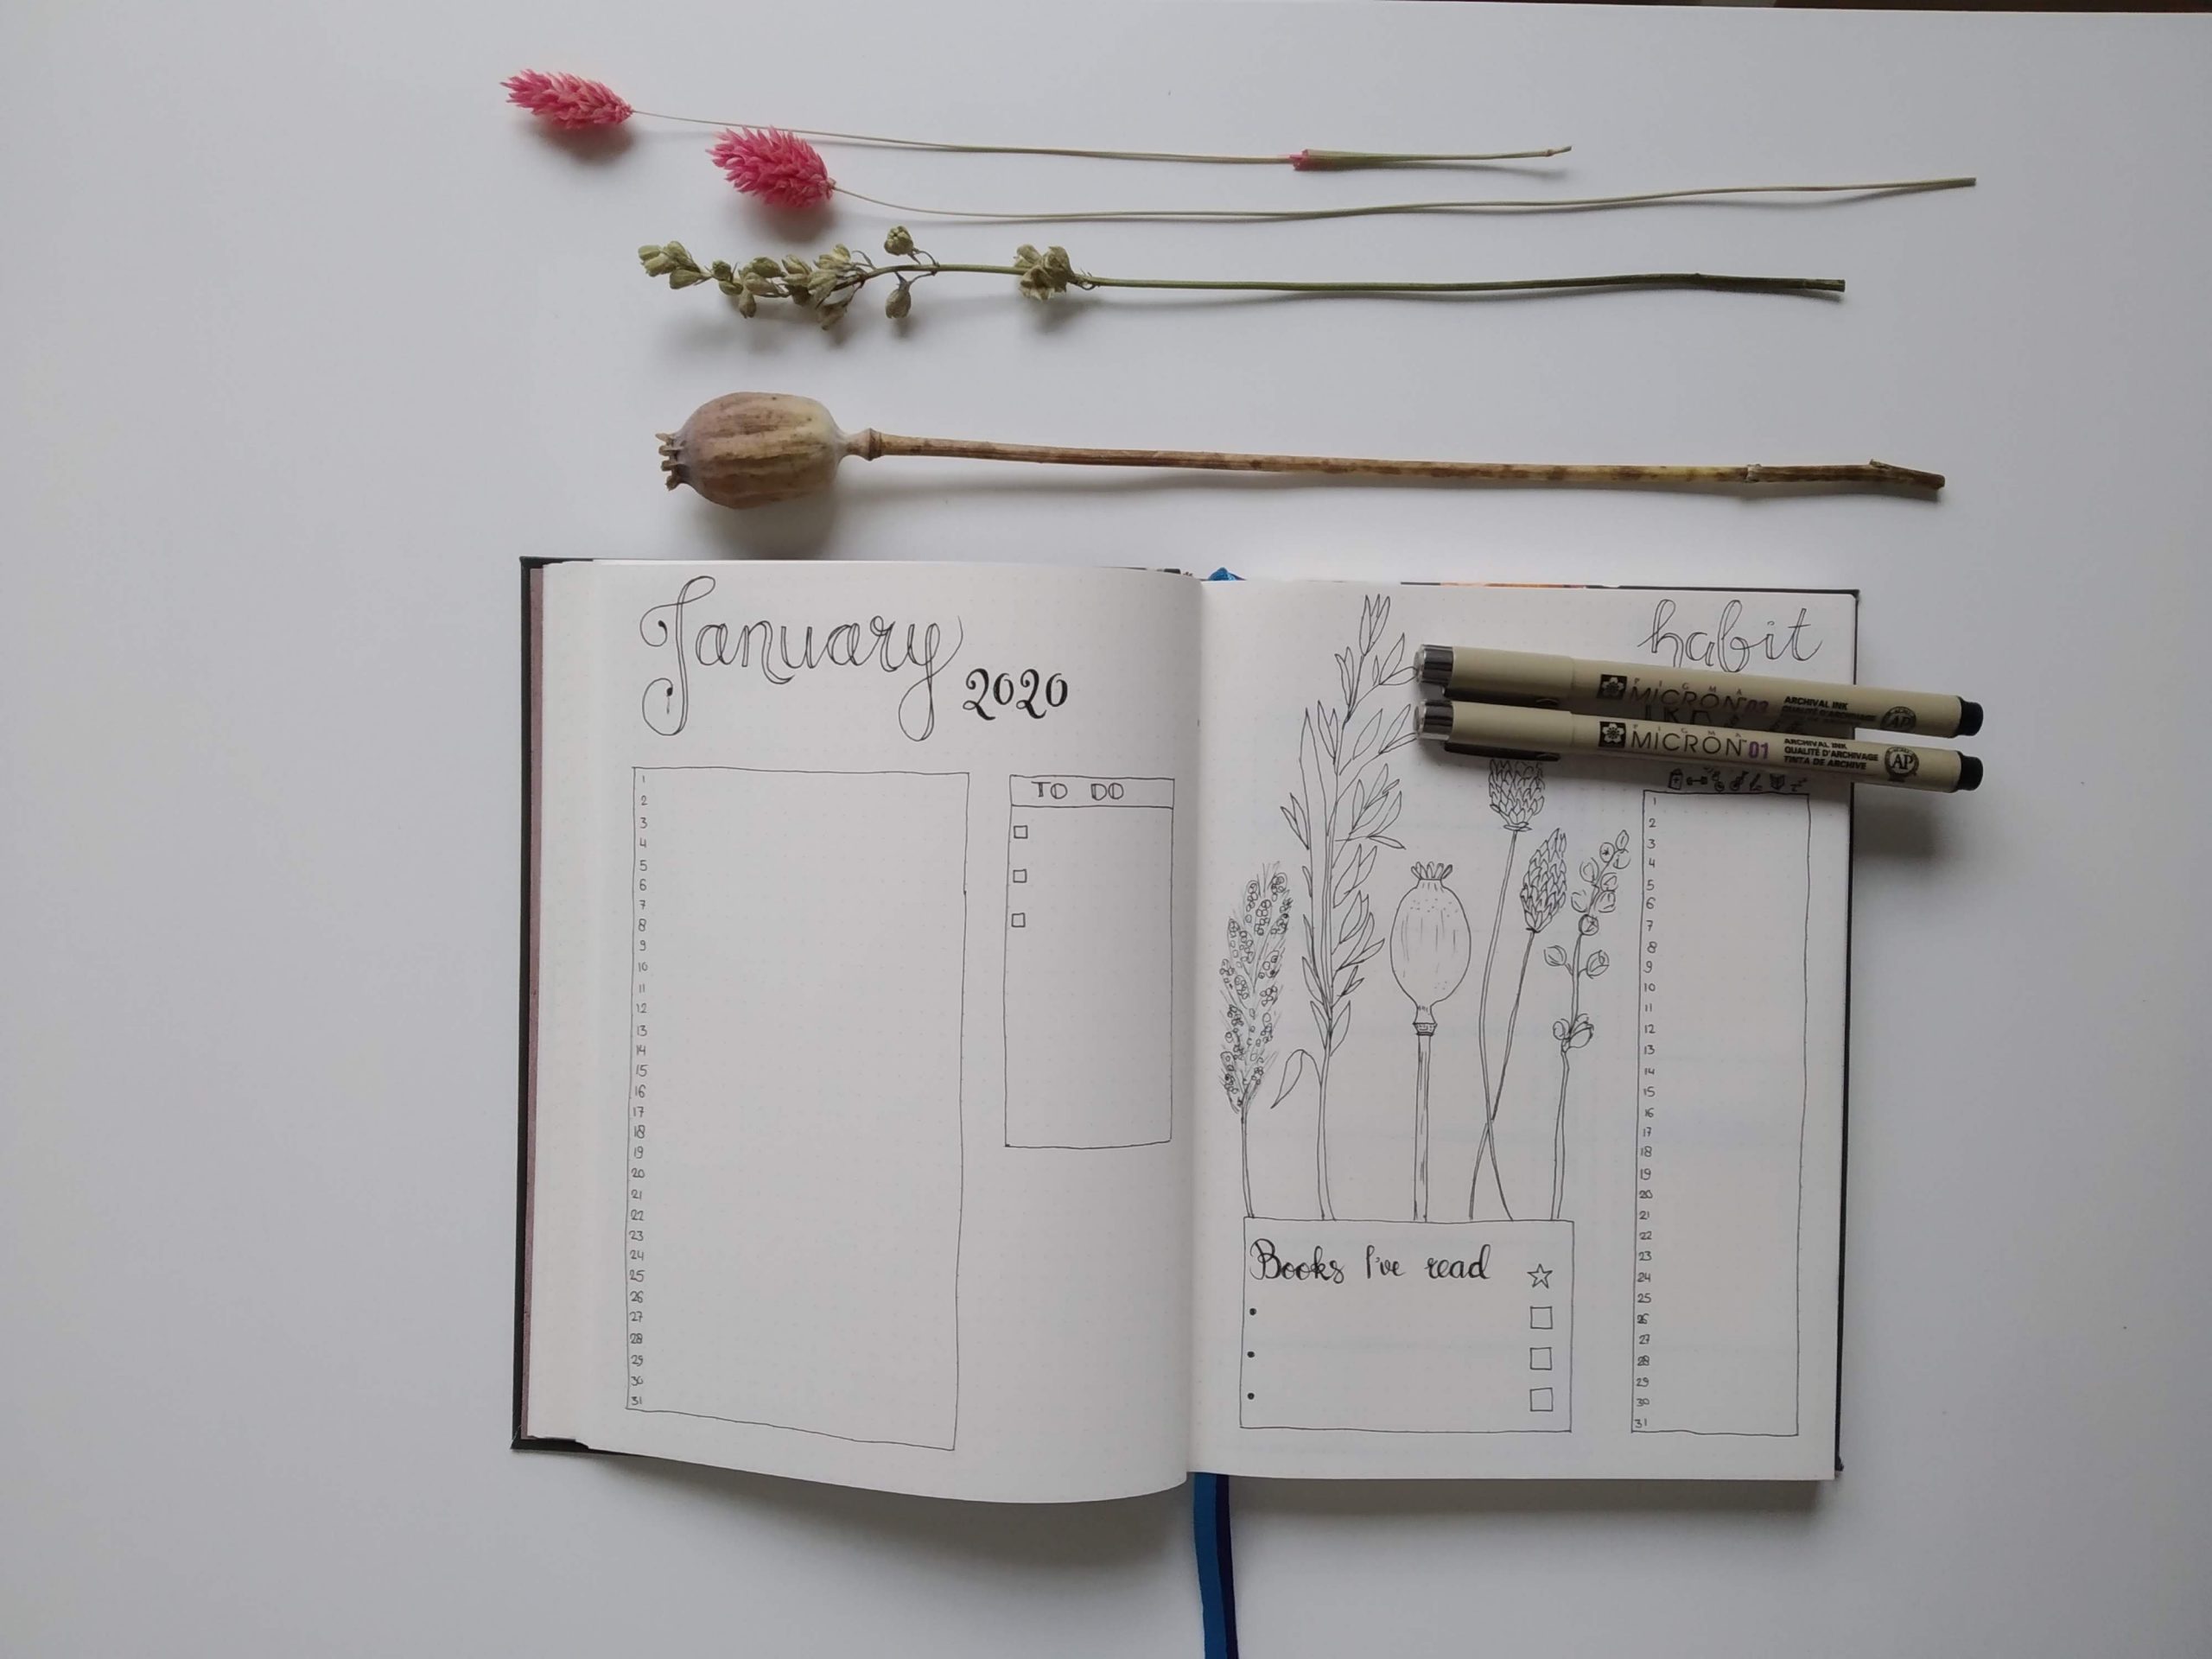 January
2020
1
2
3
4
5
6
7
8
9
10
11
12
13
14
15
16
17
18
19
20
21
22
23
24
25
26
27
28
29
30
31
TO DO
habit
PIGMA
MICRON
ARCHIVAL INK
QUALITÉ D'ARCHIVAGE
AP
PIGMA
MICRON 01
ARCHIVAL INK
QUALITÉ D'ARCHIVAGE
TINTA DE ARCHIVE
AP
Books I've read
1
2
3
4
5
6
7
8
9
10
11
12
13
14
15
16
17
18
19
20
21
22
23
24
25
26
27
28
29
30
31